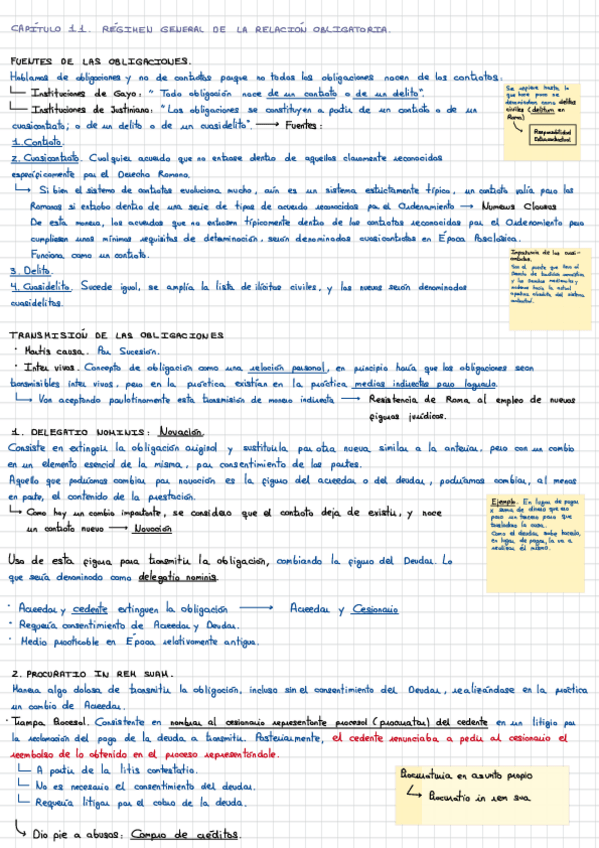 CAPÍTULO 11. RÉGIMEN GENERAL DE LA RELACIÓN OBLIGATORIA.
FUENTES DE LAS OBLIGACIONES.
Hablamos de obligaciones y no de contratos porque no todas las obligaciones nacen de los contratos:
Instituciones de Gayo: "Toda obligación nace de un contrato o de un delito".
Instituciones de Justiniano: "Las obligaciones se constituyen a partir de un contrato o de un
cuasicontrato; o de un delito o de un cuasidelito". → Fuentes:
Se espiaza hasta lo
que hace poco se
denominaban como delitos
civiles (delictum en
Roma)
Responsabilidad
Extracontractual
1. Contrato.
2. Cuasicontrato. Cualquier acuerdo que no entrase dentro de aquellos claramente reconocidos
específicamente por el Derecho Romano.
Si bien el sistema de contratos evoluciona mucho, aún es un sistema estrictamente típico, un contrato valía para los
Romanos si entraba dentro de una serie de tipos de acuerdo reconocidos por el Ordenamiento → Numerus Clausus
De esta manera, los acuerdos que no entrasen típicamente dentro de los contratos reconocidos por el Ordenamiento pero
cumpliesen unos mínimos requisitos de determinación, serán denominados cuasicontratos en Época Posclásica.
Funciona como un contrato.
Importancia de los cuasi-
contratos.
3. Delito.
4. Cuasidelito. Sucede igual, se amplía la lista de ilícitos civiles, y los nuevos serán denominados
cuasidelitos.
TRANSMISIÓN DE LAS OBLIGACIONES
· Mortis causa. Por Sucesión.
· Inter vivos. Concepto de obligación como una relación personal, en principio haría que las obligaciones sean
transmisibles inter vivos, pero en la práctica existían en la práctica medios indirectos para lograrlo.
Van aceptando paulatinamente esta transmisión de manera indirecta → Resistencia de Roma al empleo de nuevas
figuras jurídicas.
1. DELEGATIO NOMINIS: Novación.
Consiste en extinguir la obligación original y sustituirla por otra nueva similar a la anterior, pero con un cambio
en un elemento esencial de la misma, por consentimiento de las partes.
Aquello que podríamos cambiar por novación es la figura del acreedor o del deudor, podríamos cambiar, al menos
en parte, el contenido de la prestación.
Como hay un cambio importante, se considera que el contrato deja de existir, y nace
un contrato nuevo → Novación
Ejemplo. En lugar de pagar
x suma de dinero que era
para un tercero para que
trasladara la casa.
Como el deudor sabe hacerlo,
en lugar de pagar, lo va a
realizar él mismo.
Uso de esta figura para transmitir la obligación, cambiando la figura del Deudor. Lo
que sería denominado como delegatio nominis.
· Acreedor y cedente extinguen la obligación → Acreedor y Cesionario
· Requería consentimiento de Acreedor y Deudor.
· Medio practicable en Época relativamente antigua.
2. PROCURATIO IN REM SUAM.
Manera algo dolosa de transmitir la obligación, incluso sin el consentimiento del Deudor, realizándose en la práctica
un cambio de Acreedor.
· Trampa Procesal. Consistente en nombrar al cesionario representante procesal (procurator) del cedente en un litigio por
la reclamación del pago de la deuda a transmitir. Posteriormente, el cedente renunciaba a pedir al cesionario el
reembolso de lo obtenido en el proceso representándole.
A partir de la litis contestatio.
No es necesario el consentimiento del deudor.
Requería litigar por el cobro de la deuda.
Procuraturia en asunto propio
Procuratio in rem sua
Dio pie a abusos: Compra de créditos.